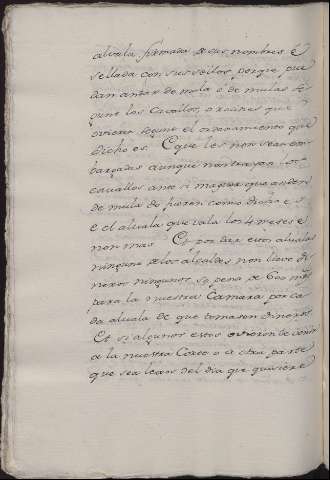 alvala firmada de sus nombres e
sellada con sus sellos, porque pue
dan andar de mula o de mulas se
gunt los Cavallos, o rocines que
ovieren segunt el ordenamiento que
dicho es. E que les non sean em
bargadas aunque non trayan los
cavallos ante si mager que anden
de mula do fueren como dicho e s.
e el alvala que vala los 4 meses e
non mas. Et por dar estos alvalas
ninguno de los alcaldes non lieve di
neros ningunos so pena de 600 mrs
para la nuestra Camara por ca
da alvala de que tomaren dineros
Et si algunos estos ovieren de venir
a la nuestra Corte o a otra parte
que sea lexos del dia que quisiere